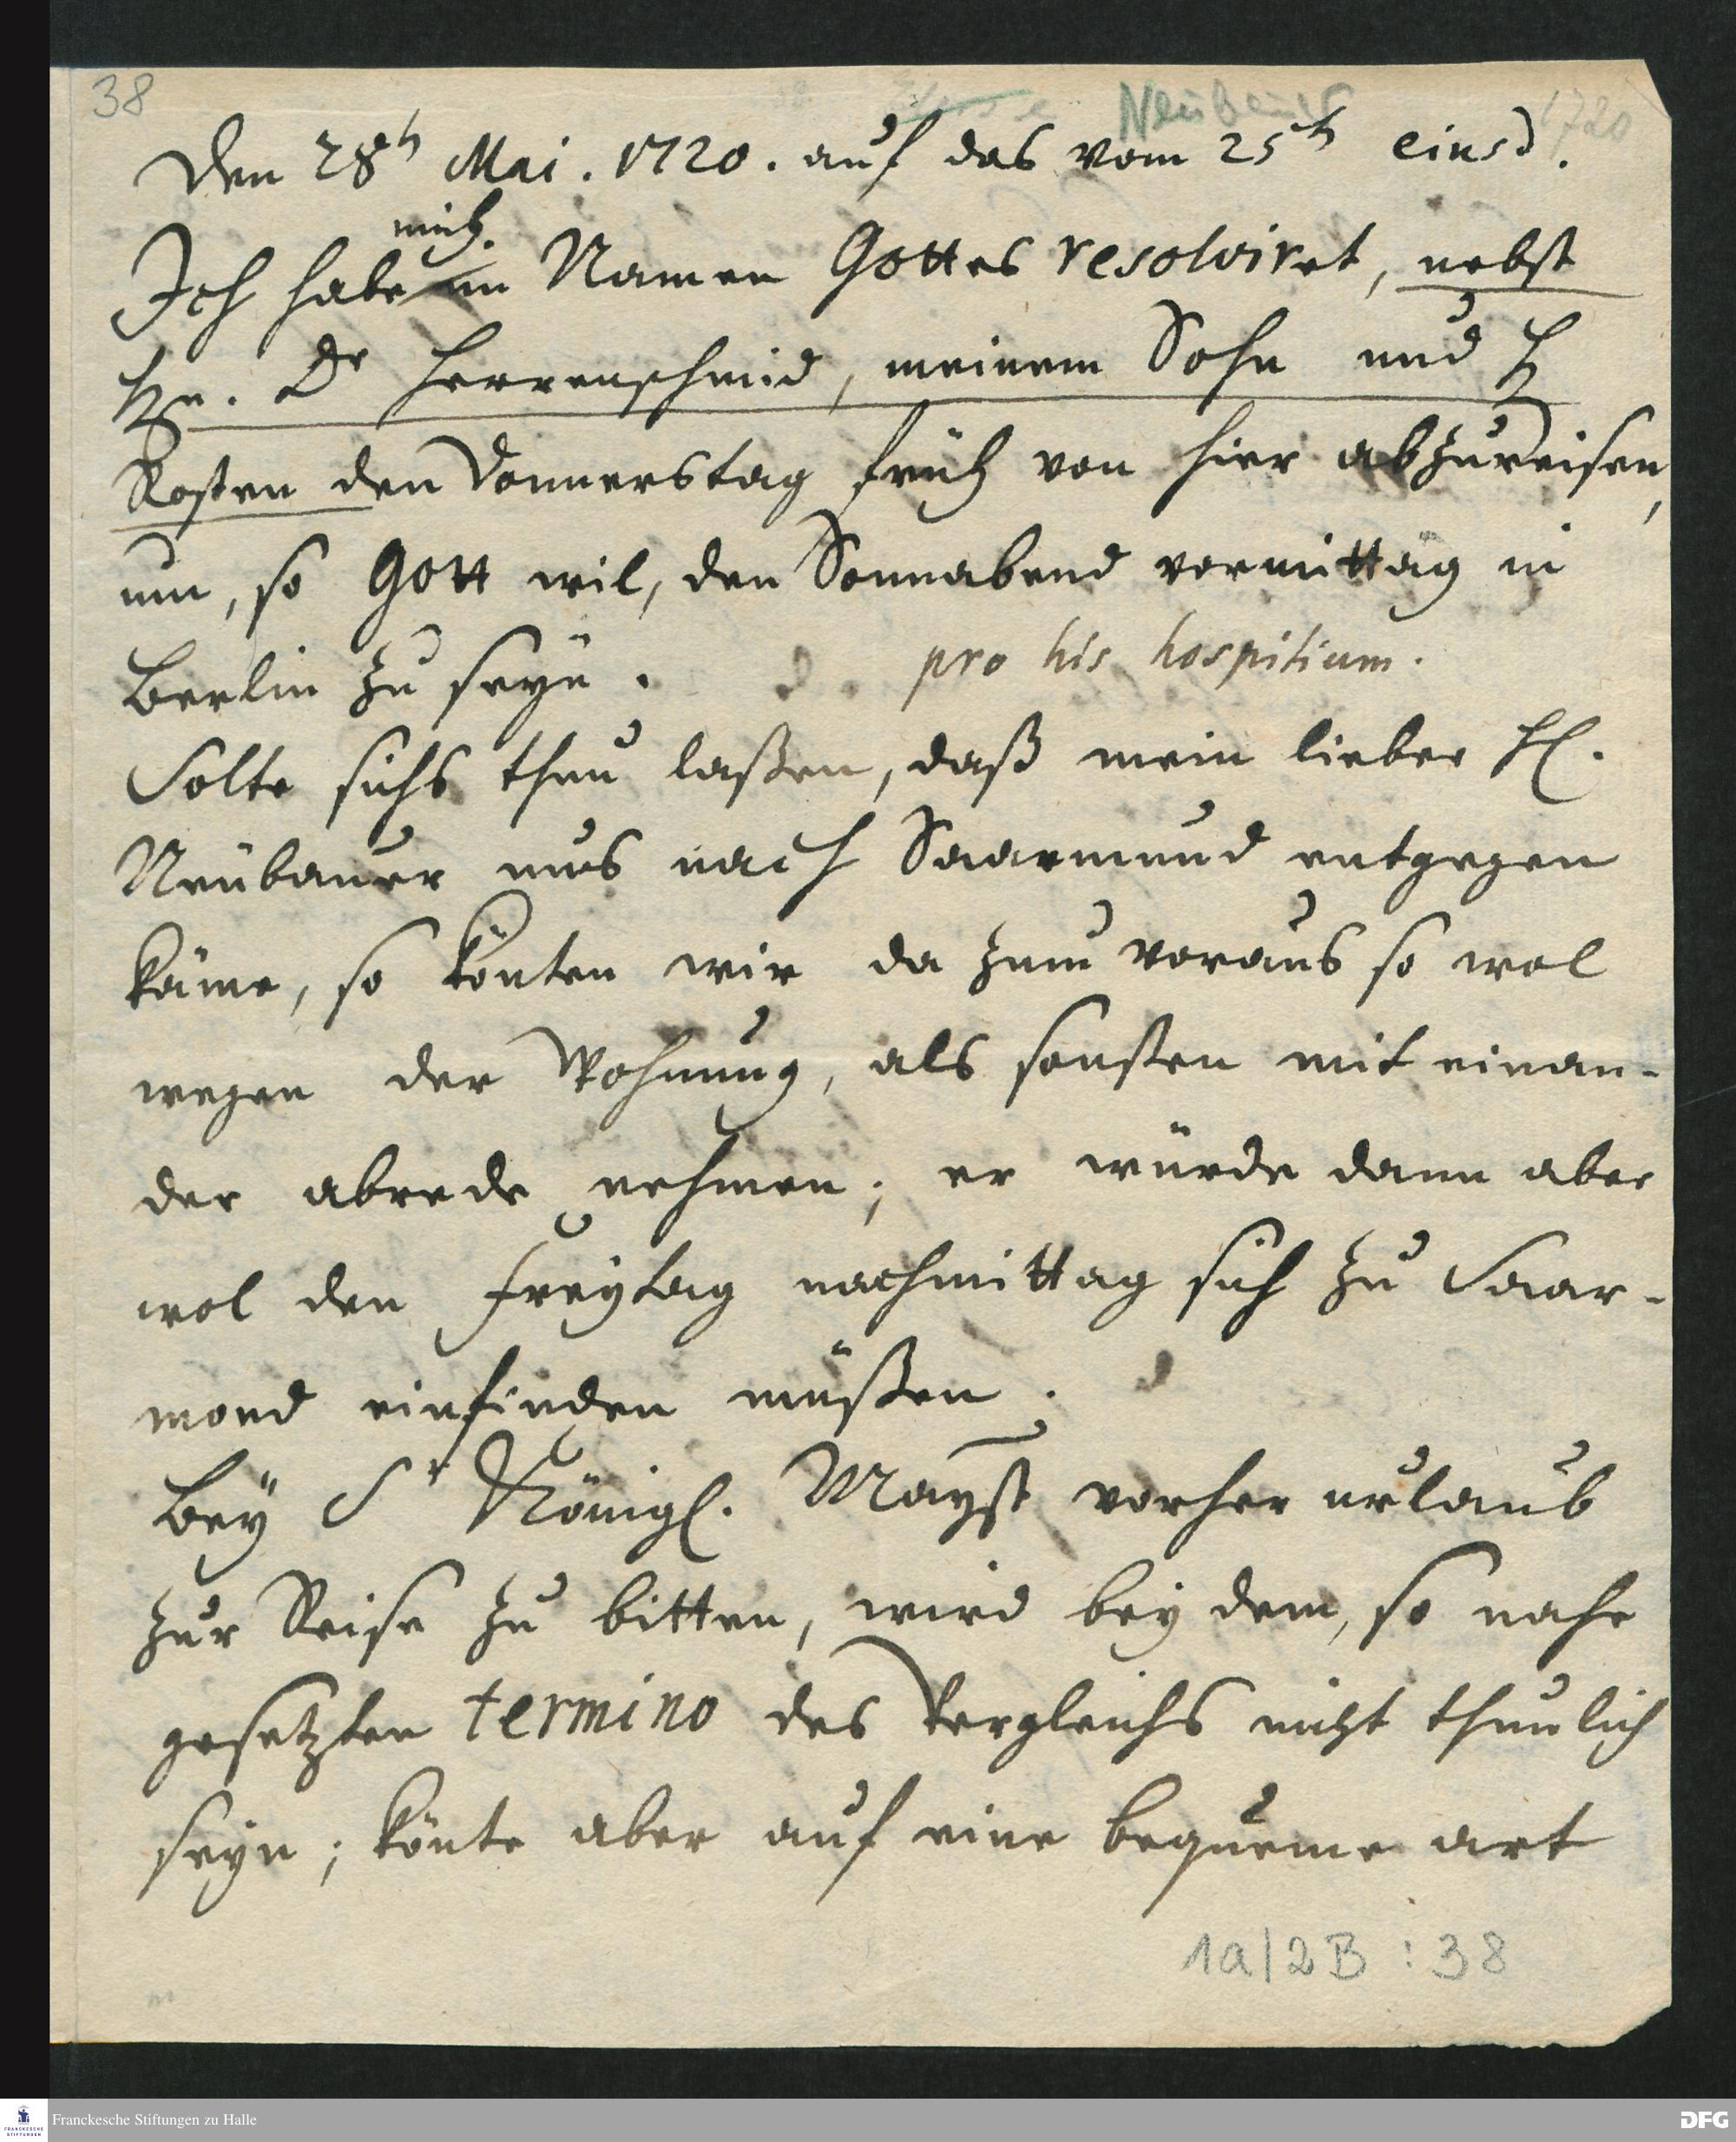 38
Neubauer
1720
Den 28t Mai. 1720. auf das vom 25t eiusd.
mich
Ich habe im Namen Gottes resolviret, nebst
Hn. Dr Herrenschmid, meinem Sohn und H
Kosten den Donnerstag früh von hier abzureisen,
um, so Gott wil, den Sonnabend vormittag in
Berlin zu seyn.
pro his hospitium.
Solte sichs thun laßen, daß mein lieber H.
Neubauer uns nach Saarmund entgegen
käme, so könten wir da zum voraus so wol
wegen der Wohnung, als sonsten mit einan-
der abrede nehmen; er würde dann aber
wol den Freytag nachmittag sich zu Saar-
mond einfinden müßen.
Bey Sr Königl. Mayst vorher urlaub
zur Reise zu bitten, wird bey dem, so nahe
gesetzten termino des Vergleichs nicht thunlich
seyn; könte aber auf eine bequeme art
1a/2B : 38
Franckesche Stiftungen zu Halle
DFG